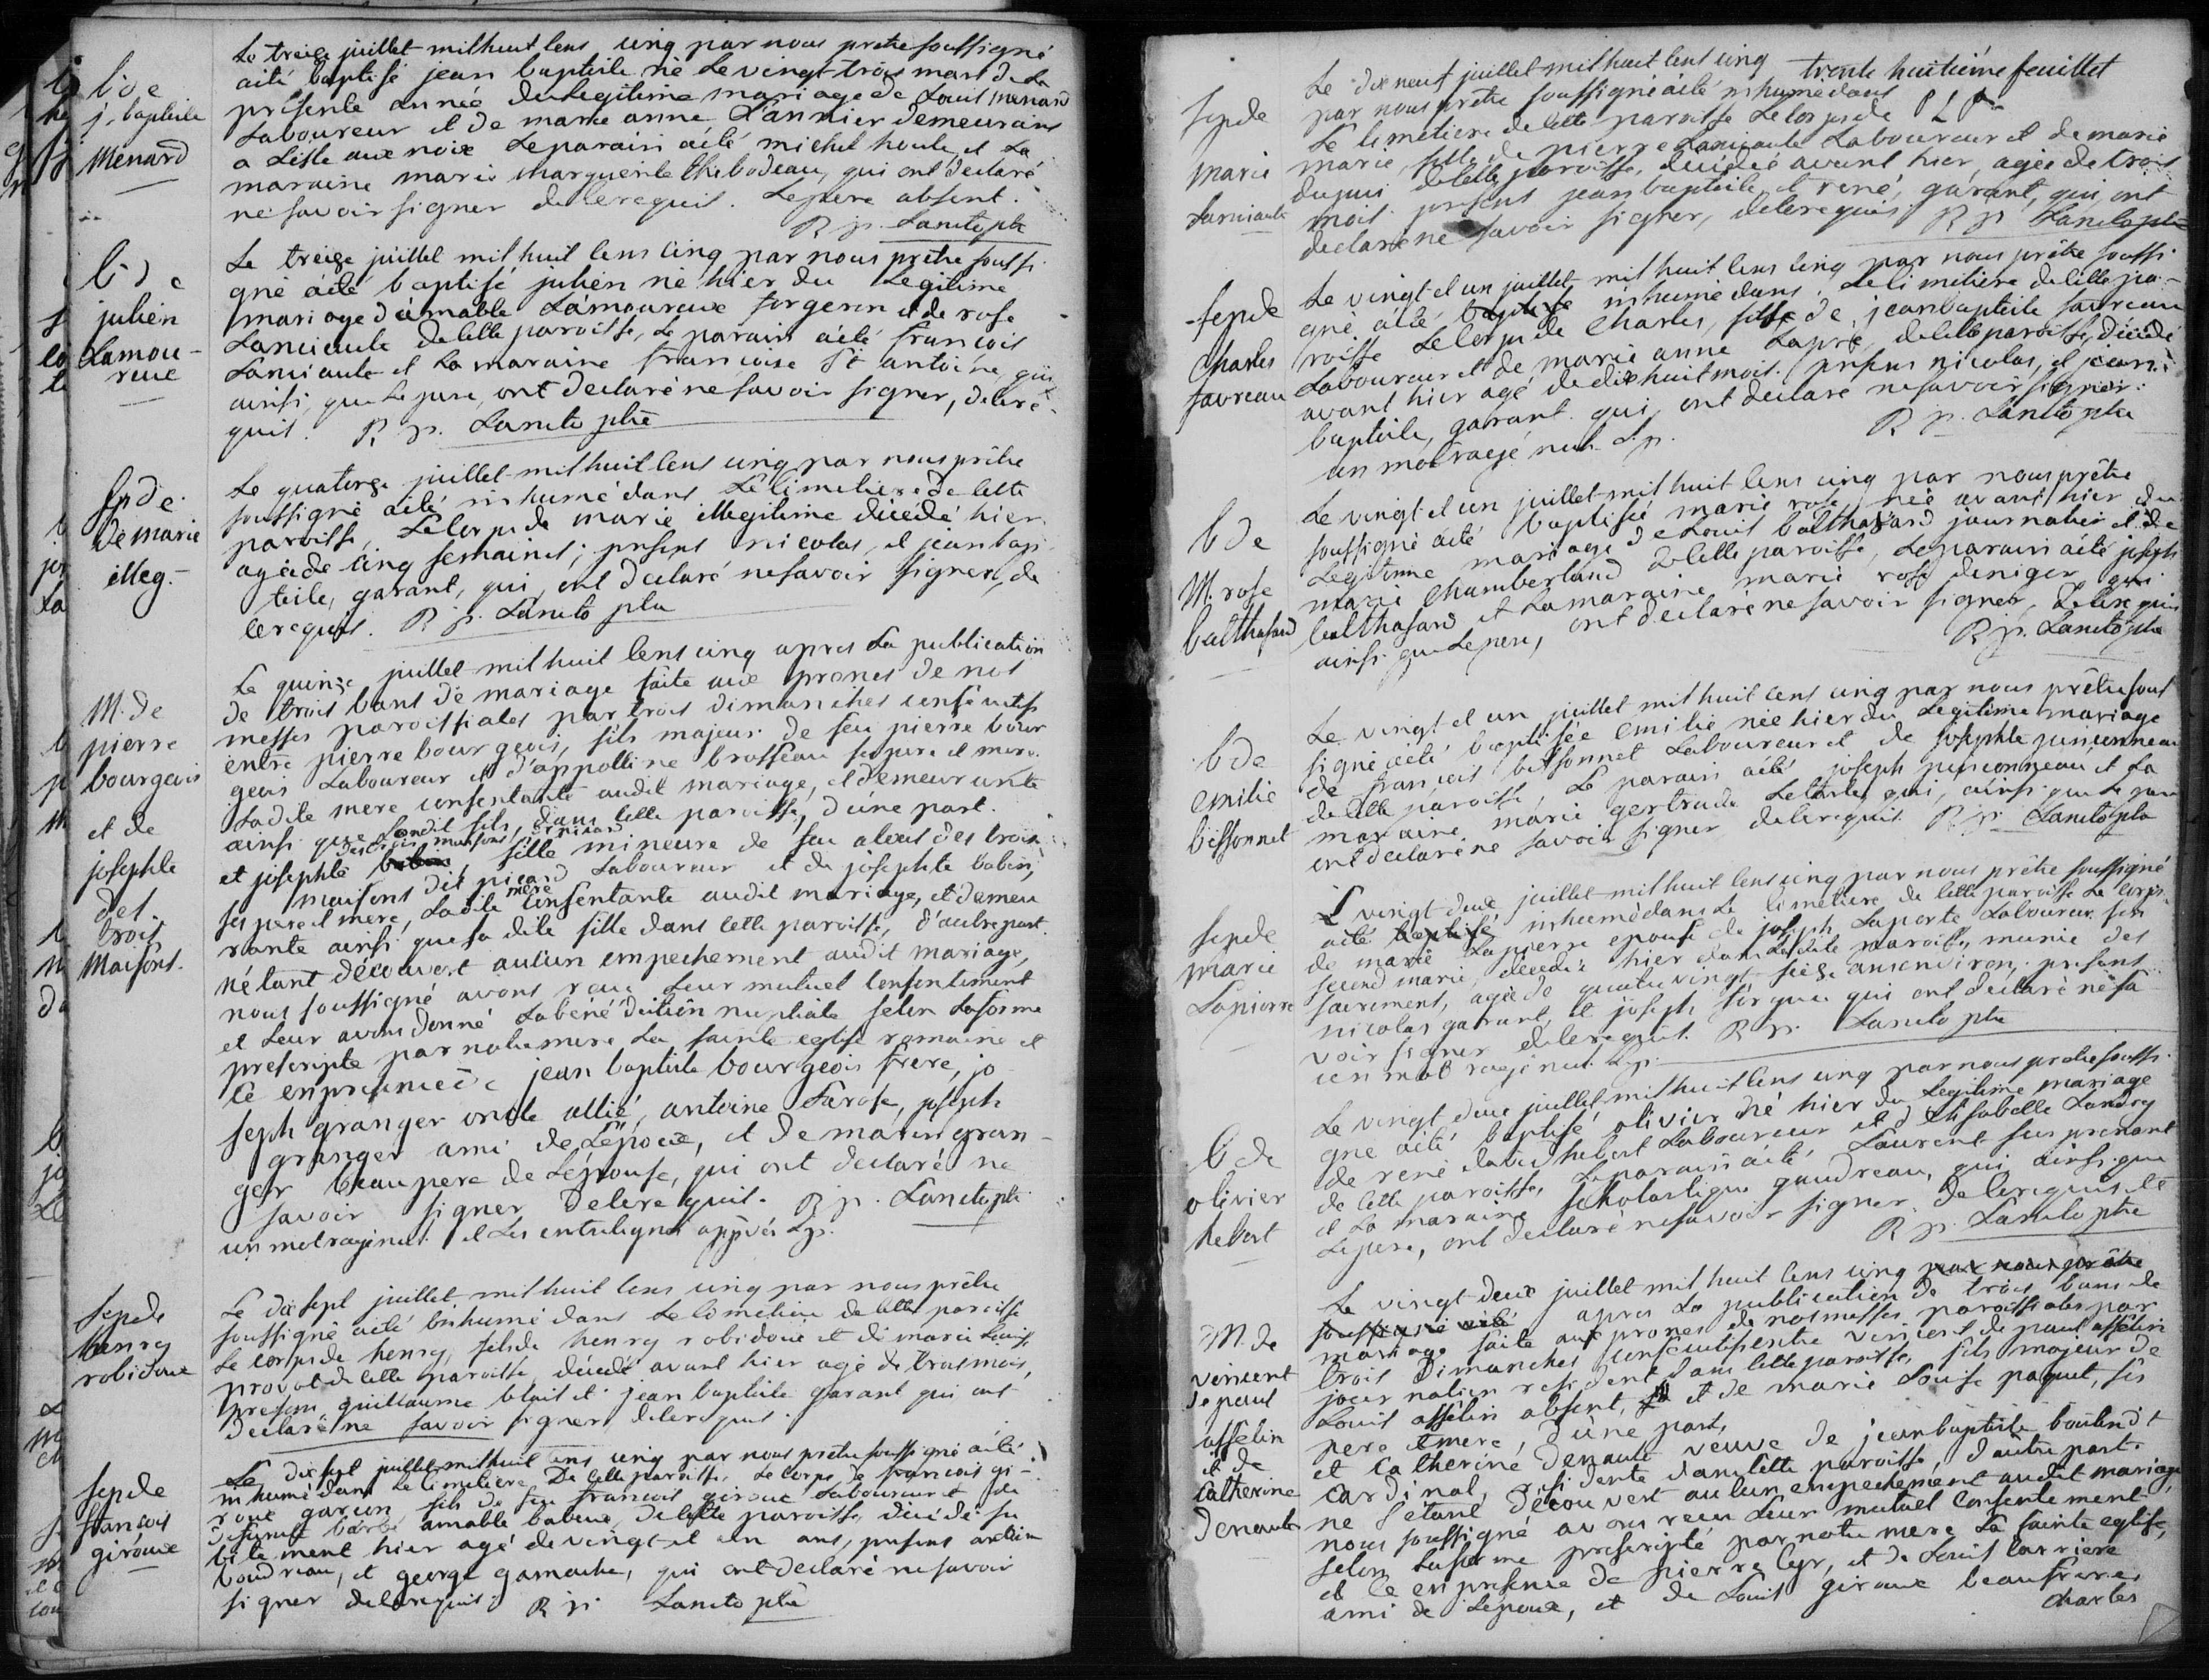 b. de
j. baptiste
menard
Le treize juillet mil huit cens cinq par nous prêtre soussigné
aité baptisé jean baptiste né le vingt trois mars de la
presente année du legitime mariage de Louis menard
Laboureur et de marie anne Lannier demeurans
a Lisle aux noix Le parain aété michel houle et La
maraine marie marguerite thibodeau, qui ont declaré
ne savoir signer de ce requis. Le pere absent.
R p. Lancto ptre
b. de
julien
Lamou-
reux
Le treize juillet mil huit cens cinq par nous prêtre soussi
gné aété baptisé julien né hier du Legitime
mariage d'aimable Lamoureux forgeron et de rose
Lanciaute de cette paroisse, Le parain aété francois
Lanciaute et La maraine francoise St antoine qui
ainsi que Le pere, ont declaré ne savoir signer, de ce re-
quis. R p. Lancto ptre
Sep de
De marie
illeg.-
Le quatorze juillet mil huit cens cinq par nous prêtre
soussigné aété inhumé dans Le cimetiere de cette
paroisse, Le corps de marie illegitime décédé hier
agée de cinq semaines; presens nicolas, et jean bap
tiste, garant, qui ont declaré ne savoir signer, de
ce requis. R p. Lancto ptre
M. de
pierre
bourgeois
et de
josephte
des
trois
Maisons.
Le quinze juillet mil huit cens cinq apres La publication
de trois bans de mariage faite aux prones de nos
messes paroissiales par trois dimanches consécutifs
entre pierre bourgeois, fils majeur de feu pierre bour
geois Laboureur et d'appolline brosseau ses pere et mere
Ladite mere consentante audit mariage, et demeurante
ainsi que Sondit fils, dans cette paroisse, d'une part.
des trois maisons dit picard
et josephte fille mineure de feu alexis des trois
maisons dit picard Laboureur et de josephte babin,
mere
ses pere et mere, Ladite consentante audit mariage, et demeu
rante ainsi que sa dite fille dans cette paroisse, d'autre part.
ne s'etant découvert aucun empechement audit mariage,
nous soussigné avons recu Leur mutuel consentement
et Leur avons donné La bénédiction nuptiale selon La forme
prescripte par notre mere La sainte eglise romaine et
ce en presence de jean baptiste bourgeois frere, jo-
seph granger oncle allié, antoine Larose, joseph
granger ami de L'epoux, et de marin gran-
ger beaupere de L'épouse, qui ont declaré ne
savoir signer de ce requis. R p. Lancto ptre
un mot rayé nul et Les entrelignes approuvés Lp.
Sep de
henry
robidoux
Le dix sept juillet mil huit cens cinq par nous prêtre
soussigné aété inhumé dans Le cimetiere de cette paroisse
Le corps de henry, fils de henry robidoux et de marie Louise
provot de cette paroisse, décédé avant hier agé de trois mois,
presens guillaume blais et jean baptiste garant qui ont
declaré ne savoir signer, de ce requis.
Sep de
francois
giroux
Le dix sept juillet mil huit cens cinq par nous prêtre soussigné aété
inhumé dans Le cimetiere de cette paroisse, Le corps de francois gi-
roux garcon fils de feu francois giroux Laboureur et de
defunte amable babeux, de cette paroisse, décédé su
bitement hier agé de vingt et un ans, presens antoine
boudreau, et george gamache, qui ont declaré ne savoir
signer de ce requis. R p. Lancto ptre
trente huitiéme feuillet
P L P
Sep de
marie
Lanciaute
Le dix neuf juillet mil huit cens cinq
par nous prêtre soussigné aété inhumé dans
Le cimetiere de cette paroisse Le corps de
marie, fille de pierre Lanciaute Laboureur et de marie
dupuis de cette paroisse, décédée avant hier, agée de trois
mois. presens jean baptiste et rené, garant, qui ont
declaré ne savoir signer, de ce requis. R p. Lancto ptre
Sep de
Charles
favreau
Le vingt et un juillet mil huit cens cinq par nous prêtre soussi
gné aété baptisé inhumé dans Le cimetiere de cette pa-
roisse Le corps de Charles, fils de jean baptiste favreau
Laboureur et de marie anne Lapré, de cette paroisse, décédé
avant hier agé de dix huit mois. presens nicolas, et jean
baptiste, garant qui ont declaré ne savoir signer.
un mot rayé nul. Lp. R p. Lancto ptre
b de
M. rose
balthasard
Le vingt et un juillet mil huit cens cinq par nous prêtre
soussigné aété baptisée marie rose, née avant hier du
Legitime mariage de Louis balthasard journalier et de
marie Chamberland de cette paroisse, Le parain aété joseph
balthasard et La maraine marie rose deniger qui
ainsi que Le pere, ont declaré ne savoir signer, de ce requis
R p. Lancto ptre
b de
emilie
bissonnet
Le vingt et un juillet mil huit cens cinq par nous prêtre sous
signé aété baptisée emilie née hier du Legitime mariage
de francois bissonnet Laboureur et de josephte pinsonneau
de cette paroisse, Le parain aété joseph pinsonneau et La
maraine marie gertrude Letarte, qui, ainsi que Le pere
ont declaré ne savoir signer de ce requis. R p. Lancto ptre
Sep de
marie
Lapierre
Le vingt deux juillet mil huit cens cinq par nous prêtre soussigné
aété baptisé inhumé dans Le cimetiere de cette paroisse Le corps
de marie Lapierre epouse de joseph Laporte Laboureur son
second mari, décédée hier dans Ladite paroisse, munie des
sacremens, agée de quatre vingt seize ans environ; presens
nicolas garant, et joseph forgue qui ont declaré ne sa
voir signer de ce requis. R p. Lancto ptre
un mot rayé nul. Lp.
b de
olivier
hebert
Le vingt deux juillet mil huit cens cinq par nous prêtre soussi
gné aété baptisé olivier né hier du Legitime mariage
de rené david hebert Laboureur et d'Elisabelle Landry
de cette paroisse, Le parain aété Laurent surprenant
et La maraine scholastique gaudreau, qui ainsi que
Le pere, ont declaré ne savoir signer, de ce requis
R p. Lancto ptre
M. de
vincent
de paul
asselin
et de
Catherine
denaut
Le vingt deux juillet mil huit cens cinq par nous prêtre
soussigné aété apres La publication de trois bans de
mariage faite aux prones de nos messes paroissiales par
trois Dimanches consécutifs entre vincent de paul asselin
journalier resident dans cette paroisse, fils majeur de
Louis asselin absent, et de marie Louise paquet, ses
pere et mere, d'une part,
et Catherine Denaut veuve de jean baptiste boulé dit
cardinal, residente dans cette paroisse, d'autre part.
ne s'étant découvert aucun empechement audit mariage,
nous soussigné avons recu Leur mutuel consentement
selon La forme prescripte par notre mere La sainte eglise,
et ce en presence de pierre Cyr, et de Louis Carriere
ami de L'epoux, et de Louis giroux beaufrere,
charles